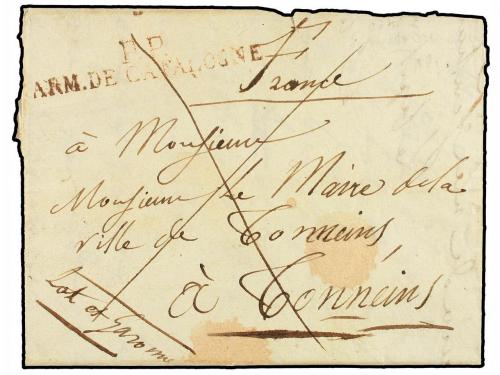 P.P.
ARM. DE CATALOGNE
France
à Monsieur
Monsieur Le Maire de la
ville de Tonneins,
à Tonneins
Lot et Garonne